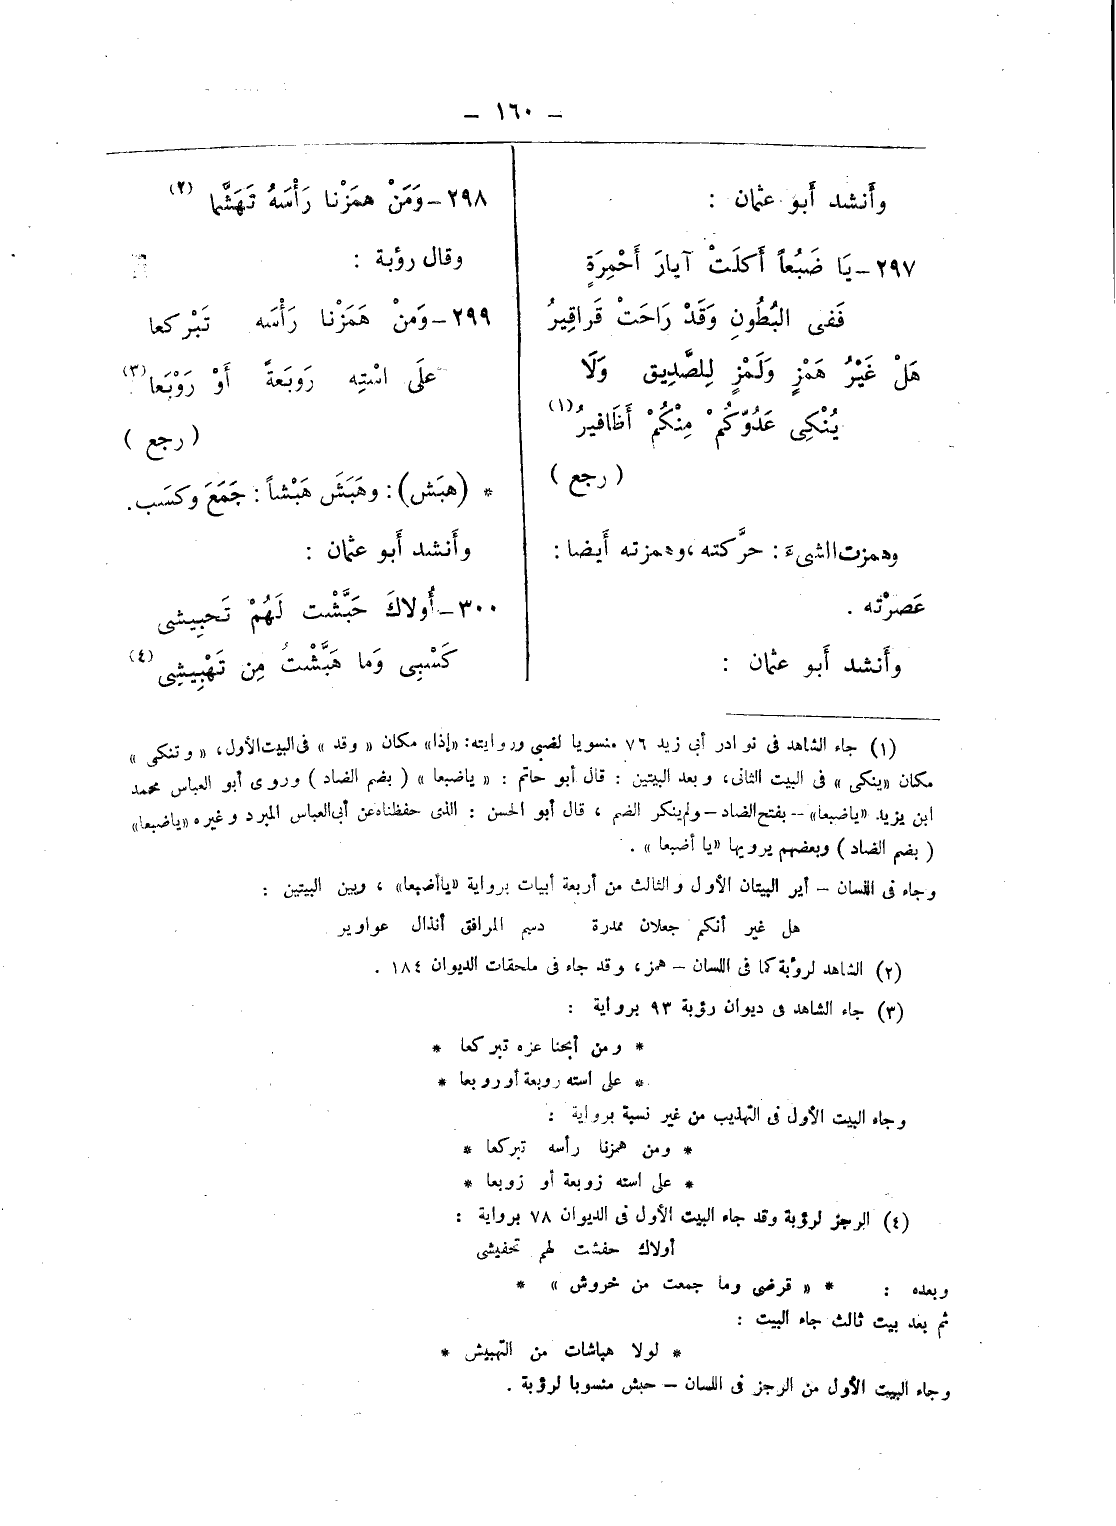 - ١٦٠ -
وأَنشد أَبو عثمان :
٢٩٧-يَا ضَبُعاً أَكلَتْ آيارَ أَحْمِرَةٍ
فَفى البُطُونِ وَقَدْ رَاحَتْ قَراقِيرُ
هَلْ غَيْرُ هَمْزٍ وَلَمْزٍ لِلصَّدِيق وَلَا
يُنْكِى عَدُوّكُمْ مِنْكُمْ أَظَافيرُ (١)
( رجع )
وهمزت الشىءَ : حرَّكته ، وهمزته أَيضا :
عَصرْته .
وأَنشد أَبو عثمان :
٢٩٨-وَمَنْ همَزْنا رَأْسَهُ تَهَشَّما (٢)
وقال رؤبة :
٢٩٩-وَمَنْ هَمَزْنا رَأْسَه تَبْركعا
علَى اسْتِه رَوبَعةً أَوْ رَوْبَعا (٣)
( رجع )
* (هبَش) : وهَبَشَ هَبْشاً : جَمَعَ وكسَب.
وأَنشد أَبو عثمان :
٣٠٠-أُولاكَ حَبَّشْت لَهُمْ تَحبِيشى
كَسْبِى وَما هَبَّشْتُ مِن تَهْبِيشِى (٤)
(١) جاء الشاهد فى نوادر أبى زيد ٧٦ منسوبا لضبى وروايته: «إذا» مكان «وقد» فى البيت الأول، «وتنكى»
مكان «ينكى» فى البيت الثانى، وبعد البيتين : قال أبو حاتم : «ياضبعا» ( بضم الضاد ) وروى أبو العباس محمد
ابن يزيد «ياضبعا» -- بفتح الضاد - ولم ينكر الضم ، قال أبو الحسن : الذى حفظناه عن أبى العباس المبرد وغيره «ياضبعا»
( بضم الضاد ) وبعضهم يرويها «يا أضبعا» .
وجاء فى اللسان - أير البيتان الأول والثالث من أربعة أبيات برواية «ياأضبعا» ، وبين البيتين :
هل غير أنكم جعلان ممدرة دسم المرافق أنذال عواوير
(٢) الشاهد لرؤبة كما فى اللسان - همز، وقد جاء فى ملحقات الديوان ١٨٤ .
(٣) جاء الشاهد فى ديوان رؤبة ٩٣ برواية :
* ومن أبحنا عزه تبركعا *
* على استه روبعة أو روبعا *
وجاء البيت الأول فى التهذيب من غير نسبة برواية :
* ومن همزنا رأسه تبركعا *
* على استه زوبعة أو زوبعا *
(٤) الرجز لرؤبة وقد جاء البيت الأول فى الديوان ٧٨ برواية :
أولاك حفشت لهم تحفيشى
وبعده : * « قرضى وما جمعت من خروش » *
ثم بعد بيت ثالث جاء البيت :
* لولا هباشات من التهبيش *
وجاء البيت الأول من الرجز فى اللسان - حبش منسوبا لرؤبة .